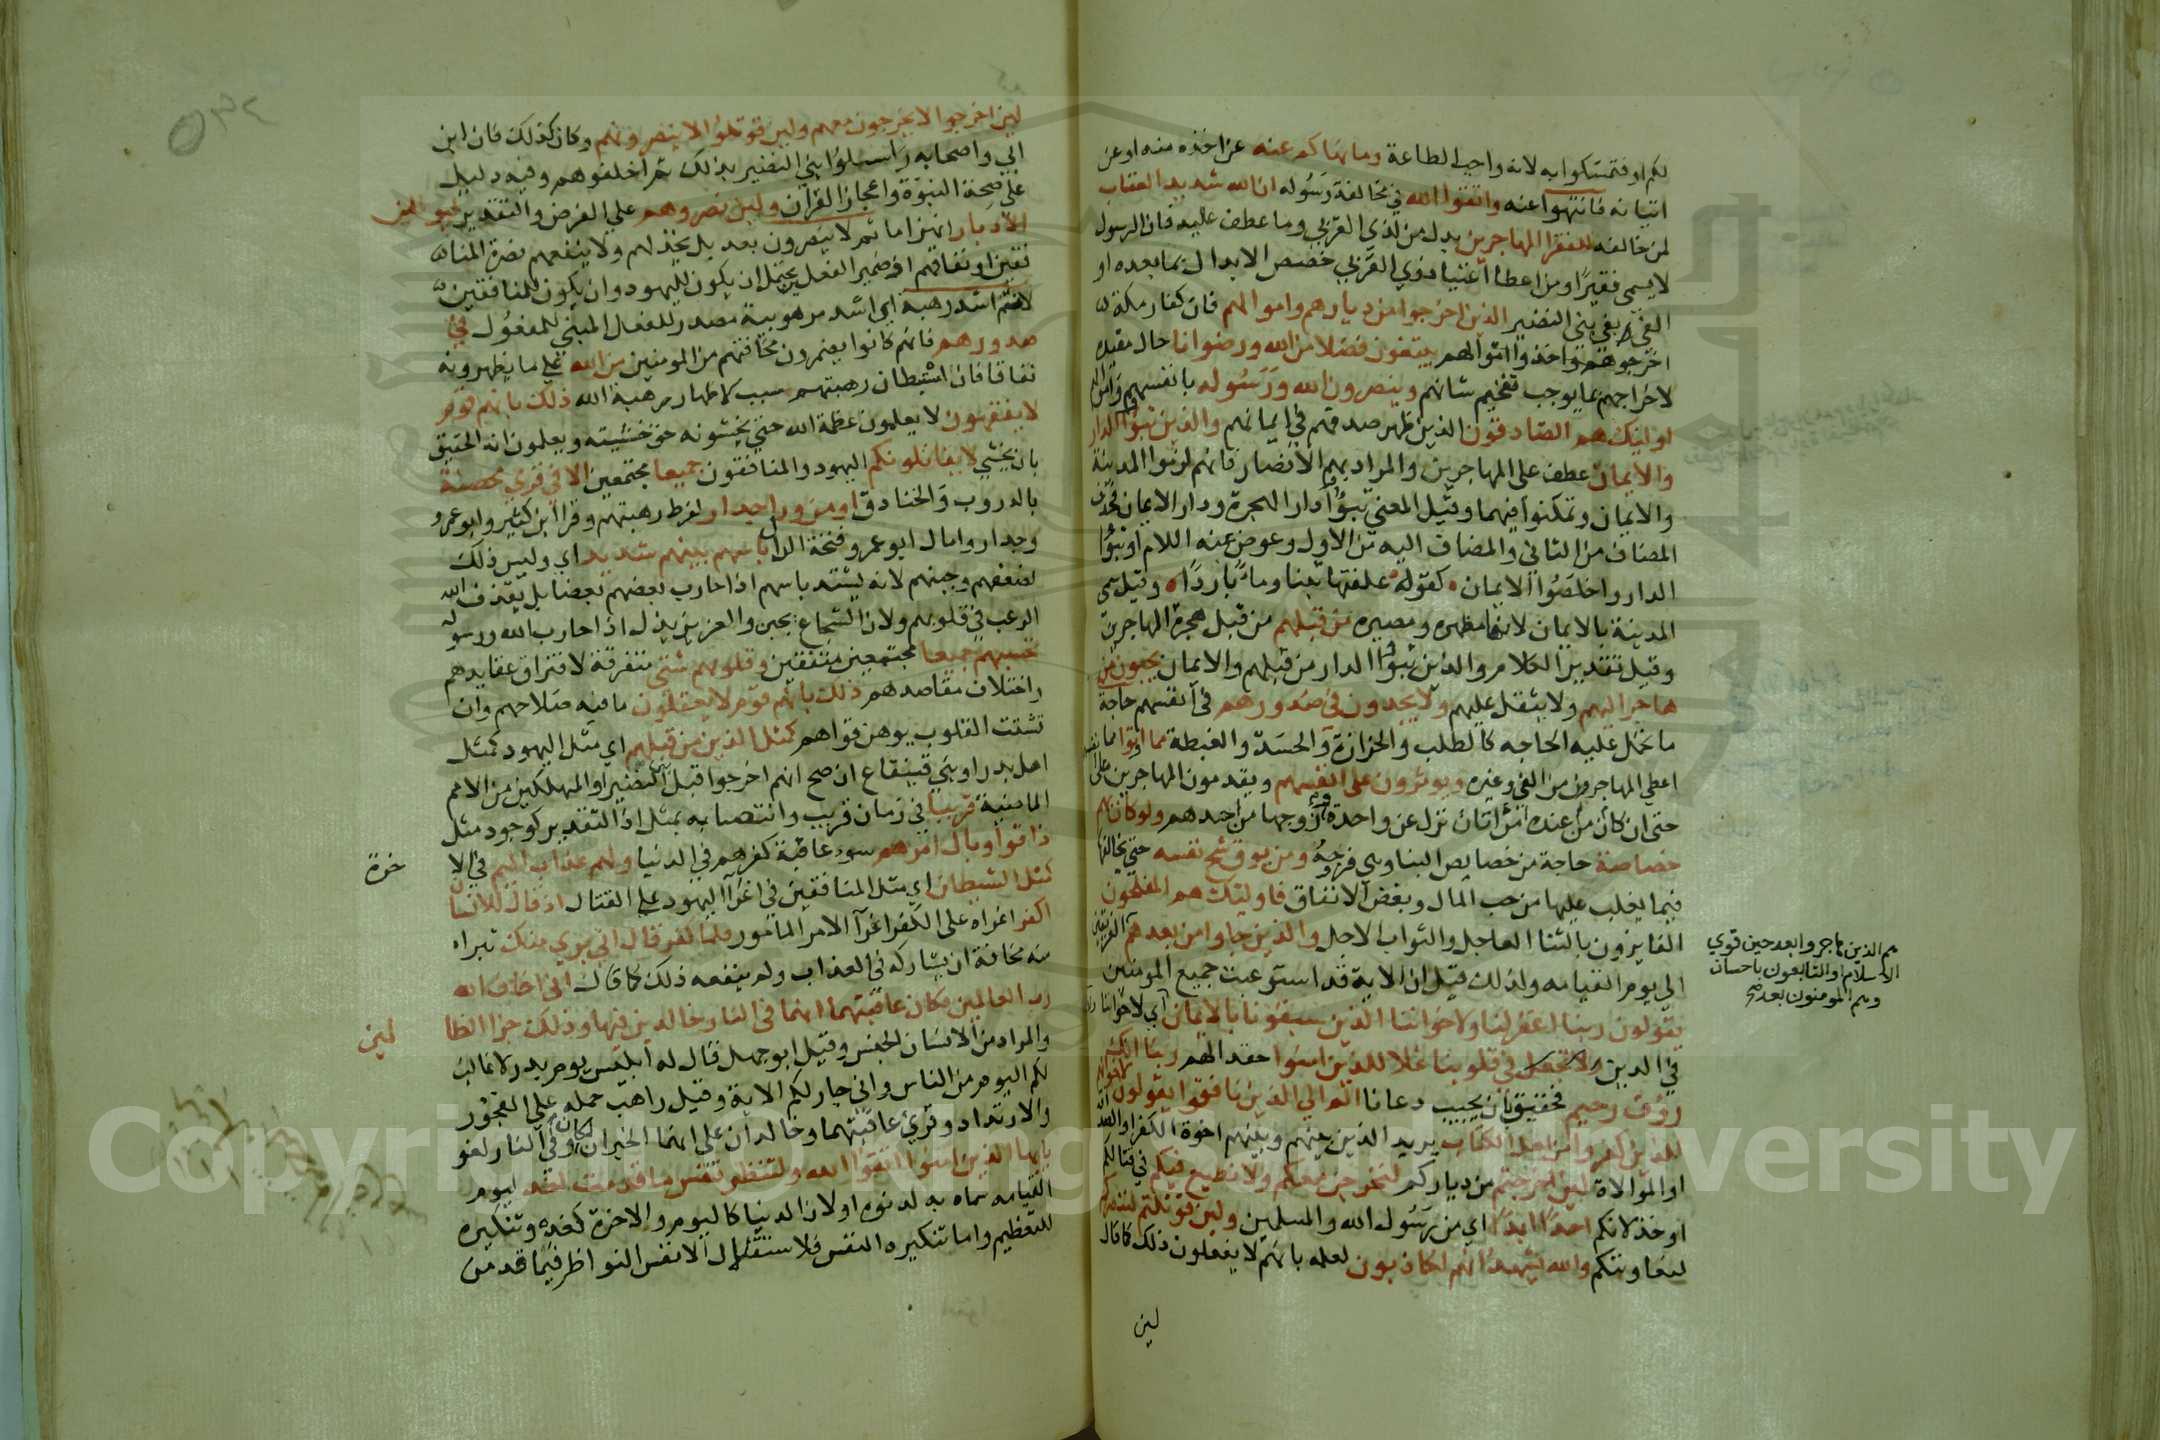 لكم او فتمسكوا به لانه واجب الطاعة وما نهاكم عنه عن اخذه منه او عن
اتيانه فانتهوا عنه واتقوا الله في مخالفة رسوله ان الله شديد العقاب
لمن خالفه للفقرا المهاجرين بدل من لذي القربي وما عطف عليه فان الرسول
لا يسمي فقيرا ومن اعطا اغنيا ذوي القربي خصص الابدال بما بعده او
الفي بفي بني النضير الذين اخرجوا من ديارهم واموالهم فان كفار مكة
اخرجوهم واخذوا اموالهم يبتغون فضلا من الله ورضوانا حال مقيدة
لاخراجهم بما يوجب تفخيم شانهم وينصرون الله ورسوله بانفسهم واموالهم
اوليك هم الصادقون الذين ظهر صدقهم في ايمانهم والذين تبوؤا الدار
والايمان عطف علي المهاجرين والمراد بهم الانصار فانهم لزموا المدينة
والايمان وتمكنوا فيهما وقيل المعني تبوؤا دار الهجرة ودار الايمان فحذف
المضاف من الثاني والمضاف اليه من الاول وعوض عنه اللام او تبوؤا
الدار واخلصوا الايمان كقوله علفتها تبنا وماء باردا وقيل سمي
المدينة بالايمان لانها مظهره ومصيره من قبلهم من قبل هجرة المهاجرين
وقيل تقدير الكلام والذين تبوؤا الدار من قبلهم والايمان يحبون من
هاجر اليهم ولا يثقل عليهم ولا يجدون في صدورهم في انفسهم حاجة
ما تحمل عليه الحاجه كالطلب والحزازة والحسد والغيظة مما اوتوا مما
اعطي المهاجرون من الفي وغيره ويوثرون علي انفسهم ويقدمون المهاجرين علي انفسهم
حتي ان كان من عنده امراتان نزل عن واحدة وزوجها من احدهم ولو كان بهم
خصاصة حاجة من خصايص البنا وهي فرجه ومن يوق شح نفسه حتي يخالفها
فيما يغلب عليها من حب المال وبغض الانفاق فاوليك هم المفلحون
الفايزون بالثنا العاجل والثواب الاجل والذين جاوا من بعدهم
هم الذين هاجروا بعد حين قوي
الاسلام او التابعون باحسان
وهم المومنون بعد الفريقين
الي يوم القيامه ولذلك قيل ان الاية قد استوعبت جميع المومنين
يقولون ربنا اغفر لنا ولاخواننا الذين سبقونا بالايمان اي لاخواننا
في الدين ولا تجعل في قلوبنا غلا للذين امنوا حقدا لهم ربنا انك
رؤف رحيم فحقيق بان يجيب دعانا الم تر الي الذين نافقوا يقولون لاخوانهم
للذين كفروا من اهل الكتاب يريد الذين بينهم وبينهم اخوة الكفر او الصداقة
او الموالاة لين اخرجتم من دياركم لنخرجن معكم ولا نطيع فيكم في قتالكم
او خذلانكم احدا ابدا اي من رسول الله والمسلمين ولين قوتلتم لننصرنكم
لنعاوننكم والله يشهد انهم لكاذبون لعلمه بانهم لا يفعلون ذلك كما قال
لين
لين اخرجوا لا يخرجون معهم ولين قوتلوا لا ينصرونهم وكان كذلك فان ابن
ابي واصحابه راسلوا بني النضير بذلك ثم اخلفوهم وفيه دليل
علي صحة النبوة واعجاز القران ولين نصروهم علي الفرض والتقدير ليولن
الادبار انهزاما ثم لا ينصرون بعد بل يخذلهم ولا ينفعهم نصرة المنا
فقين او نفاقهم اذ ضمير الفعل يحتمل ان يكون لليهود وان يكون للمنافقين
لانتم اشد رهبة اي اشد مرهوبية مصدر للفعل المبني للمفعول في
صدورهم فانهم كانوا يضمرون مخافتهم من المومنين من الله علي ما يظهرونه
نفاقا فان استبطان رهبتهم سبب لاظهار رهبة الله ذلك بانهم قوم
لا يفقهون لا يعلمون عظمة الله حتي يخشونه حق خشيته ويعلمون انه الحقيق
بان يخشي لا يقاتلونكم اليهود والمنافقون جميعا مجتمعين الا في قري محصنة
بالدروب والخنادق او من ورا جدار لفرط رهبتهم وقرا ابن كثير وابو عمرو
وجدار وامال ابو عمرو فتحة الدال باسهم بينهم شديد اي وليس ذلك
لضعفهم وجبنهم لانه يشتد باسهم اذا حارب بعضهم بعضا بل يقذف الله
الرعب في قلوبهم ولان الشجاع يجبن والعزيز يذل اذا حارب الله ورسوله
تحسبهم جميعا مجتمعين متفقين وقلوبهم شتي متفرقة لافتراق عقايدهم
واختلاف مقاصدهم ذلك بانهم قوم لا يعقلون ما فيه صلاحهم وان
تشتت القلوب يوهن قواهم كمثل الذين من قبلهم اي مثل اليهود كمثل
اهل بدر او بني قينقاع ان صح انهم اخرجوا قبل النضير او المهلكين من الامم
الماضية قريبا في زمان قريب وانتصابه بمثل اذ التقدير كوجود مثل
ذاقوا وبال امرهم سوء عاقبة كفرهم في الدنيا ولهم عذاب اليم في الا
خرة
كمثل الشيطان اي مثل المنافقين في اغرا اليهود علي القتال اذ قال للانسان
اكفر اغراه علي الكفر اغرا الامر المامور فلما كفر قال اني بري منك تبراه
منه مخافة ان يشاركه في العذاب ولم ينفعه ذلك كما قال اني اخاف الله
رب العالمين فكان عاقبتهما انهما في النار خالدين فيها وذلك جزا الظا
لمين
والمراد من الانسان الجنس وقيل ابو جهل قال له ابليس يوم بدر لا غالب
لكم اليوم من الناس واني جار لكم الاية وقيل راهب حمله علي الفجور
والارتداد وقري عاقبتهما وخالدان علي انهما الخبران لكان وفي النار لغو
يايها الذين امنوا اتقوا الله ولتنظر نفس ما قدمت لغد ليوم
القيامه سماه به لدنوه او لان الدنيا كاليوم والاخرة كغده وتنكيره
للتعظيم واما تنكيره النفس فلاستقلال الانفس النواظر فيما قدمن
Copyright © King Saud University